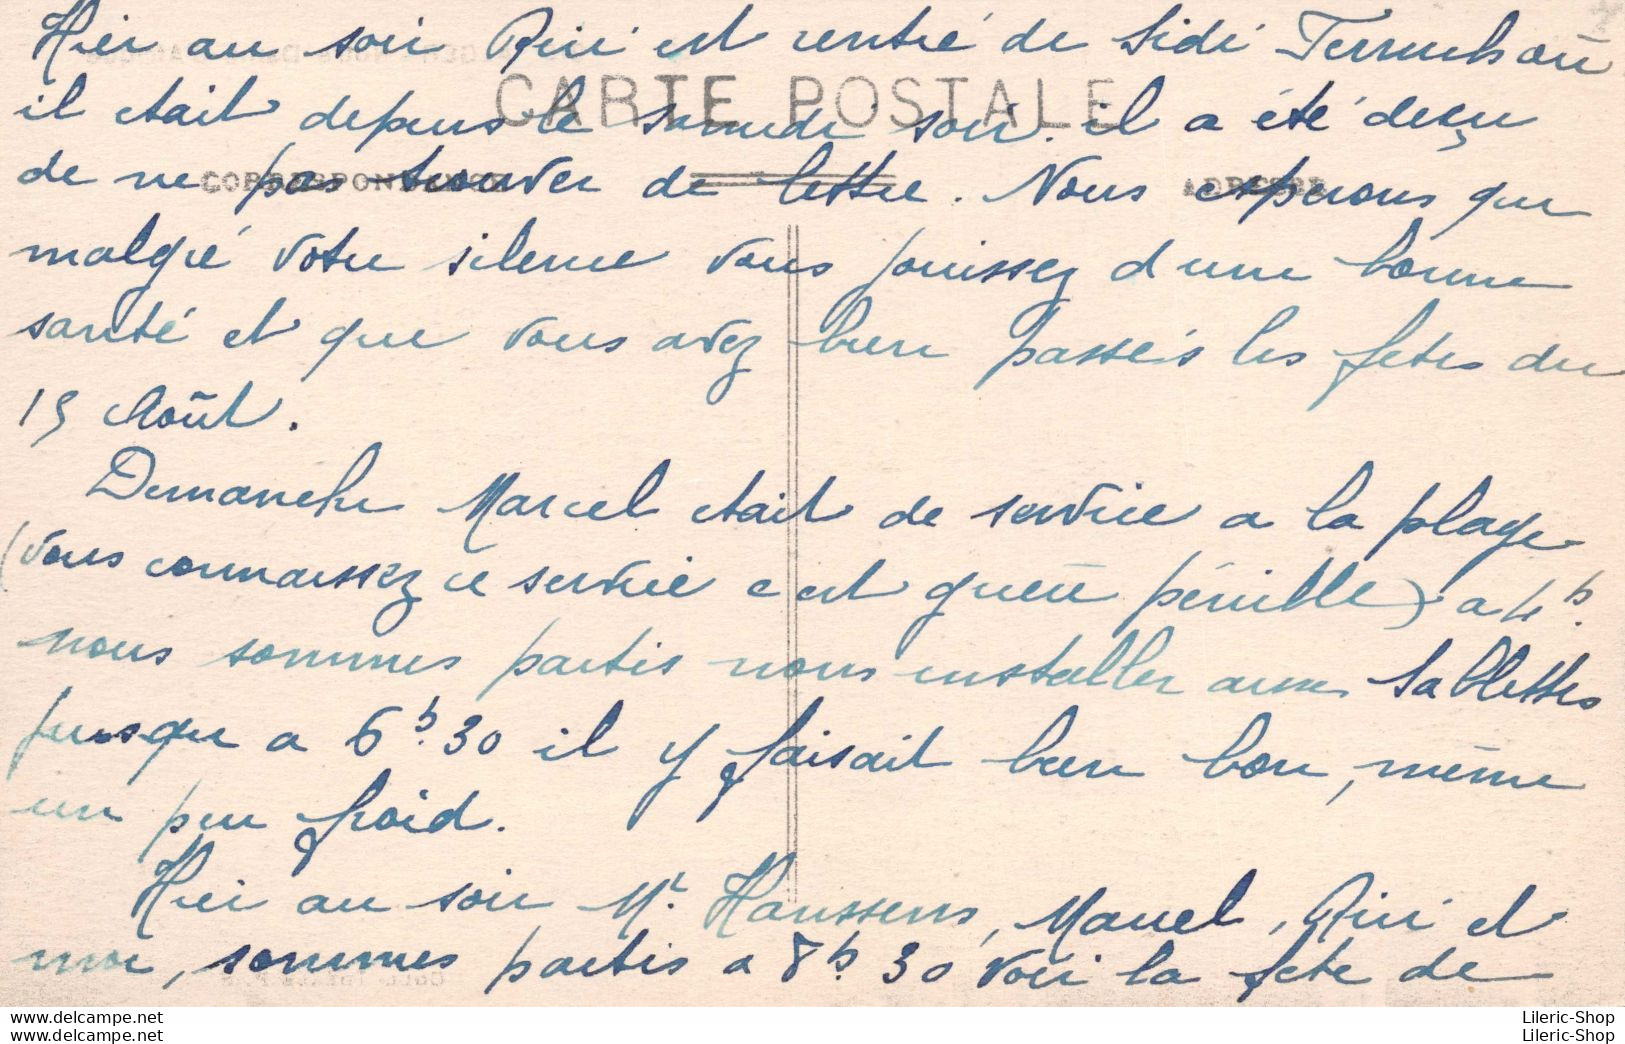 Hier au soir Riri est rentré de Sidi Ferruch où
CARTE POSTALE
il était depuis le samedi soir. il a été deçu
CORRESPONDANCE
ADRESSE
de ne pas trouver de lettre. Nous esperons que
malgré votre silence vous jouissez d'une bonne
santé et que vous avez bien passés les fetes du
15 Août.
Dimanche Marcel etait de service a la plage
(vous connaissez ce service c est guère pénible) a 4h.
nous sommes partis nous installer aux Sablettes
jusqu a 6h.30 il y faisait bien bon, même
un peu froid.
Hier au soir Mr Haussens, Marcel, Riri et
moi, sommes partis a 8h30 voir la fete de
www.delcampe.net lileric
www.delcampe.net lileric
Lileric-Shop
Lileric-Shop